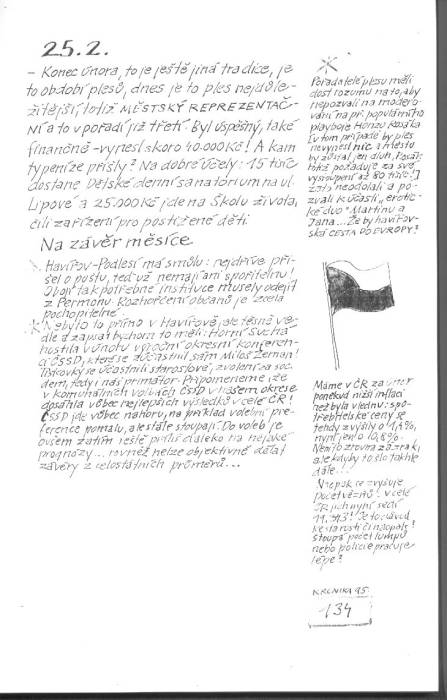 25.2.
- Konec února, to je ještě jiná tradice, je
to období plesů, dnes je to ples nejdůle-
žitější, totiž MĚSTSKÝ REPREZENTAČ-
NÍ a to v pořadí již třetí. Byl úspěšný, také
finančně - vynesl skoro 40.000 Kč! A kam
ty peníze přišly? Na dobré účely: 15 tisíc
dostane Dětské denní sanatorium na ul.
Lípové a 25.000 Kč jde na Školu života,
čili zařízení pro postižené děti.
Na závěr měsíce
Havířov-Podlesí má smůlu: nejdříve při-
šel o poštu, teď už nemají ani spořitelnu!
Obojí tak potřebné instituce musely odejít
z Permonu. Rozhořčení občanů je zcela
pochopitelné.
Nebylo to přímo v Havířově, ale těsně ve-
dle a zapsat bychom to měli: Horní Suchá
hostila v únoru výroční okresní konferen-
ci ČSSD, které se zúčastnil sám Miloš Zeman!
se účastnili starostové, zvolení za soc.
dem., tedy i náš primátor. Připomeneme, že
v komunálních volbách ČSSD v našem okrese
dosáhla vůbec nejlepších výsledků v celé ČR!
ČSSD jde vůbec nahoru, na příklad volební pre-
ference pomalu, ale stále stoupají. Do voleb je
ovšem zatím ještě příliš daleko na nějaké
prognózy... rovněž nelze objektivně dělat
závěry z celostátních průměrů...
Pořadatelé plesu měli
dost rozumu na to, aby
nepozvali na moderо-
vání na př. populárního
playboye Honzu Rosáka
(v tom případě by ples
nevynesl nic a město
by zůstal jen dluh,
totiž požaduje za své
vystoupení až 80 tisíc!)
zato neodolali a po-
zvali k účasti „erotic-
ké duo" Martinu a
Jana... Že by havířov-
ská cesta do Evropy?
Máme v ČR za únor
poněkud nižší inflaci
než byla v lednu: spo-
třebitelské ceny se
tehdy zvýšily o 1,4%,
nyní jen o 0,8%.
Není to zrovna zázrak,
ale kdyby to šlo takhle
dále...!
Naopak se zvyšuje
počet vězňů! V celé
ČR jich nyní sedí
Je to důvod
ke starosti či naopak?
Stoupá počet lumpů
nebo policie pracuje
lépe?
KRONIKA 95
134